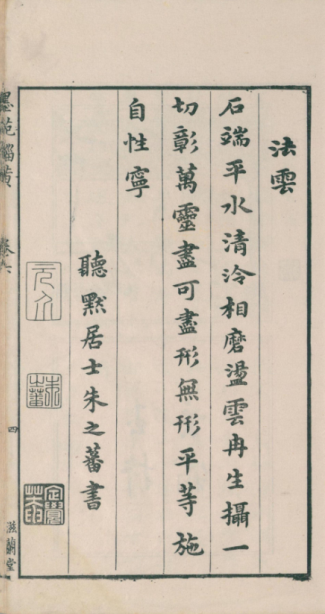 法雲
石端平水清泠相磨盪雲冉生攝一
切彰萬靈盡可盡形無形平等施
自性寧
聽默居士朱之蕃書
元介
朱之蕃
四
滋蘭堂